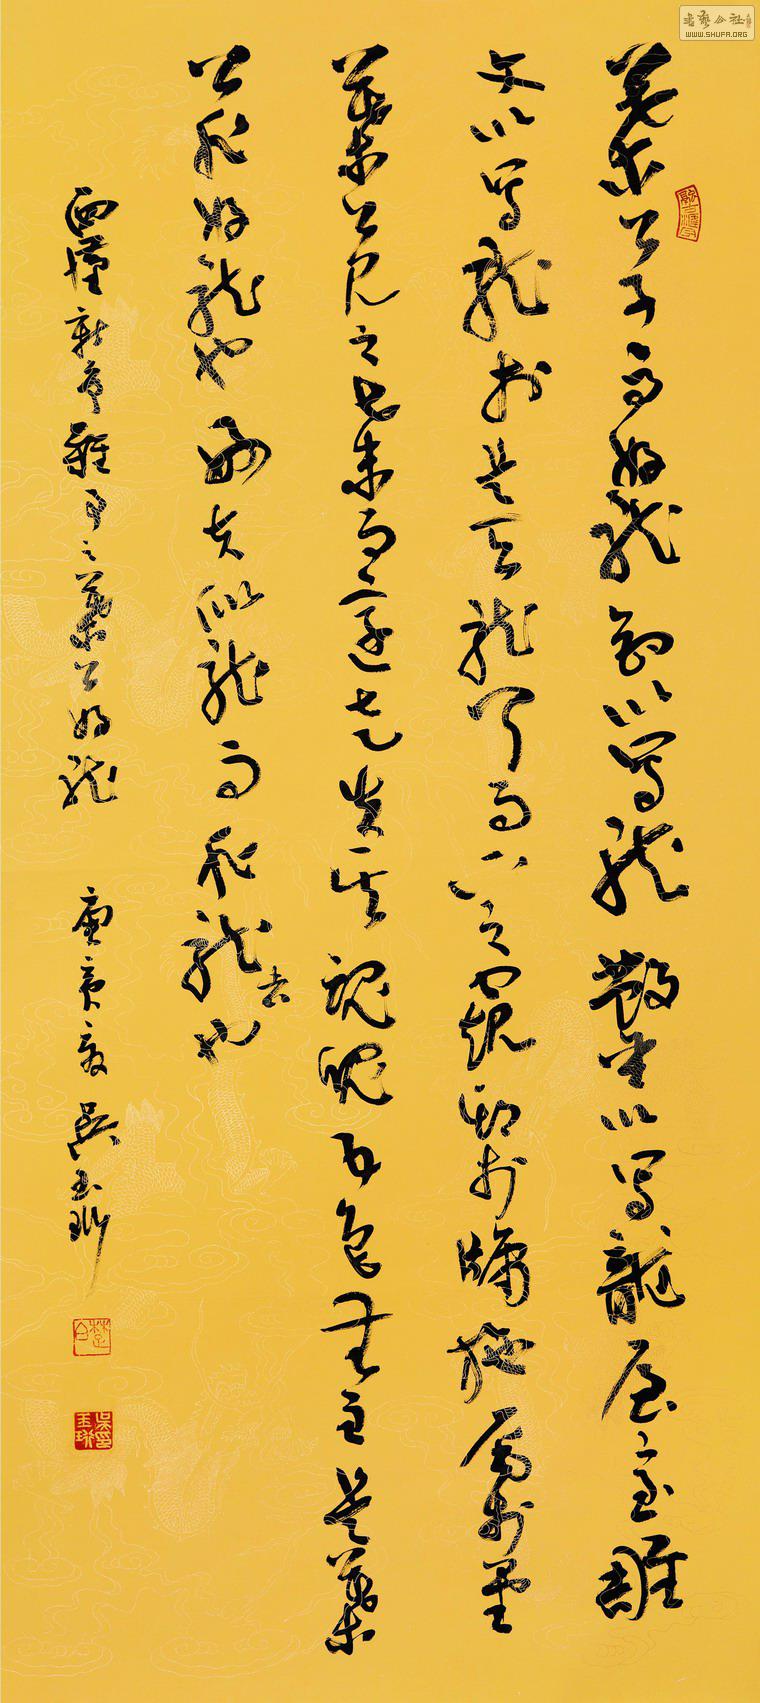 葉公子高好龍鉤以寫龍鑿以寫龍屋室雕
文以寫龍於是天龍聞而下之窺頭於牖施尾於堂
葉公見之棄而還走失其魂魄五色無主是葉
公非好龍也好夫似龍而非龍者也
西漢新序雜事之葉公好龍 庚寅夏 吳玉
書藝公社
WWW.SHUFA.ORG